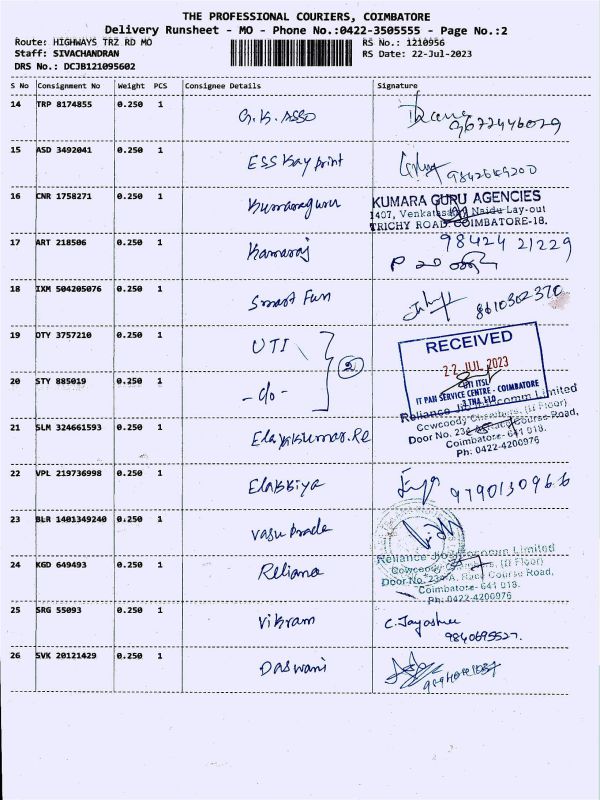 THE PROFESSIONAL COURIERS, COIMBATORE
Delivery Runsheet - MO - Phone No.:0422-3505555 - Page No.:2
Route: HIGHWAYS TRZ RD MO RS No.: 1210956
Staff: SIVACHANDRAN RS Date: 22-Jul-2023
DRS No.: DCJB121095602
S No Consignment No Weight PCS Consignee Details Signature
14 TRP 8174855 0.250 1 G.K. ASSO
15 ASD 3492041 0.250 1 ESS Kay print
16 CNR 1758271 0.250 1 Kumaraguru
KUMARA GURU AGENCIES
1407, Venkatasamy Naidu Lay-out
TRICHY ROAD. COIMBATORE-18.
17 ART 218506 0.250 1 Kamaraj 98424 21229
18 IXM 504205076 0.250 1 Smart Fun 8610302370
19 OTY 3757210 0.250 1 UTI
2
20 STY 885019 0.250 1 -do-
RECEIVED
22 JUL 2023
UTI ITSL
IT PAN SERVICE CENTRE - COIMBATORE
Reliance Jio Infocomm Limited
Cowcoody Chambers, (II Floor)
Door No. 234 A, Race Course Road,
Coimbatore- 641 018.
Ph: 0422-4200976
21 SLM 324661593 0.250 1
22 VPL 219736998 0.250 1 Elakkiya 9790130966
23 BLR 1401349240 0.250 1 Vasu Prada
24 KGD 649493 0.250 1 Reliance
Reliance Jio Infocomm Limited
Cowcoody Chambers, (II Floor)
Door No. 234 A, Race Course Road,
Coimbatore- 641 018.
Ph: 0422-4200976
25 SRG 55093 0.250 1 Vikram C. Jayashree
9840695527.
26 SVK 20121429 0.250 1 Daswani